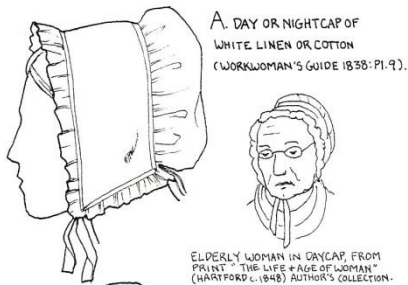 A. DAY OR NIGHTCAP OF
WHITE LINEN OR COTTON
(WORKWOMAN'S GUIDE 1838:Pl.9).
ELDERLY WOMAN IN DAYCAP, FROM
PRINT "THE LIFE + AGE OF WOMAN"
(HARTFORD c.1848) AUTHOR'S COLLECTION.